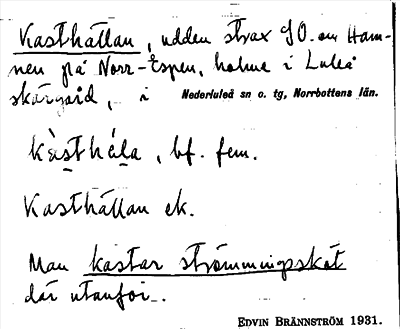 Kasthällan, udden strax SO. om Ham-
nen på Norr-Espen, holme i Luleå
skärgård, i Nederluleå sn o. tg, Norrbottens län.
kàsthála, bf. fem.
Kasthällan ek.
Man kastar strömmingsköt
där utanför.
EDVIN BRÄNNSTRÖM 1931.